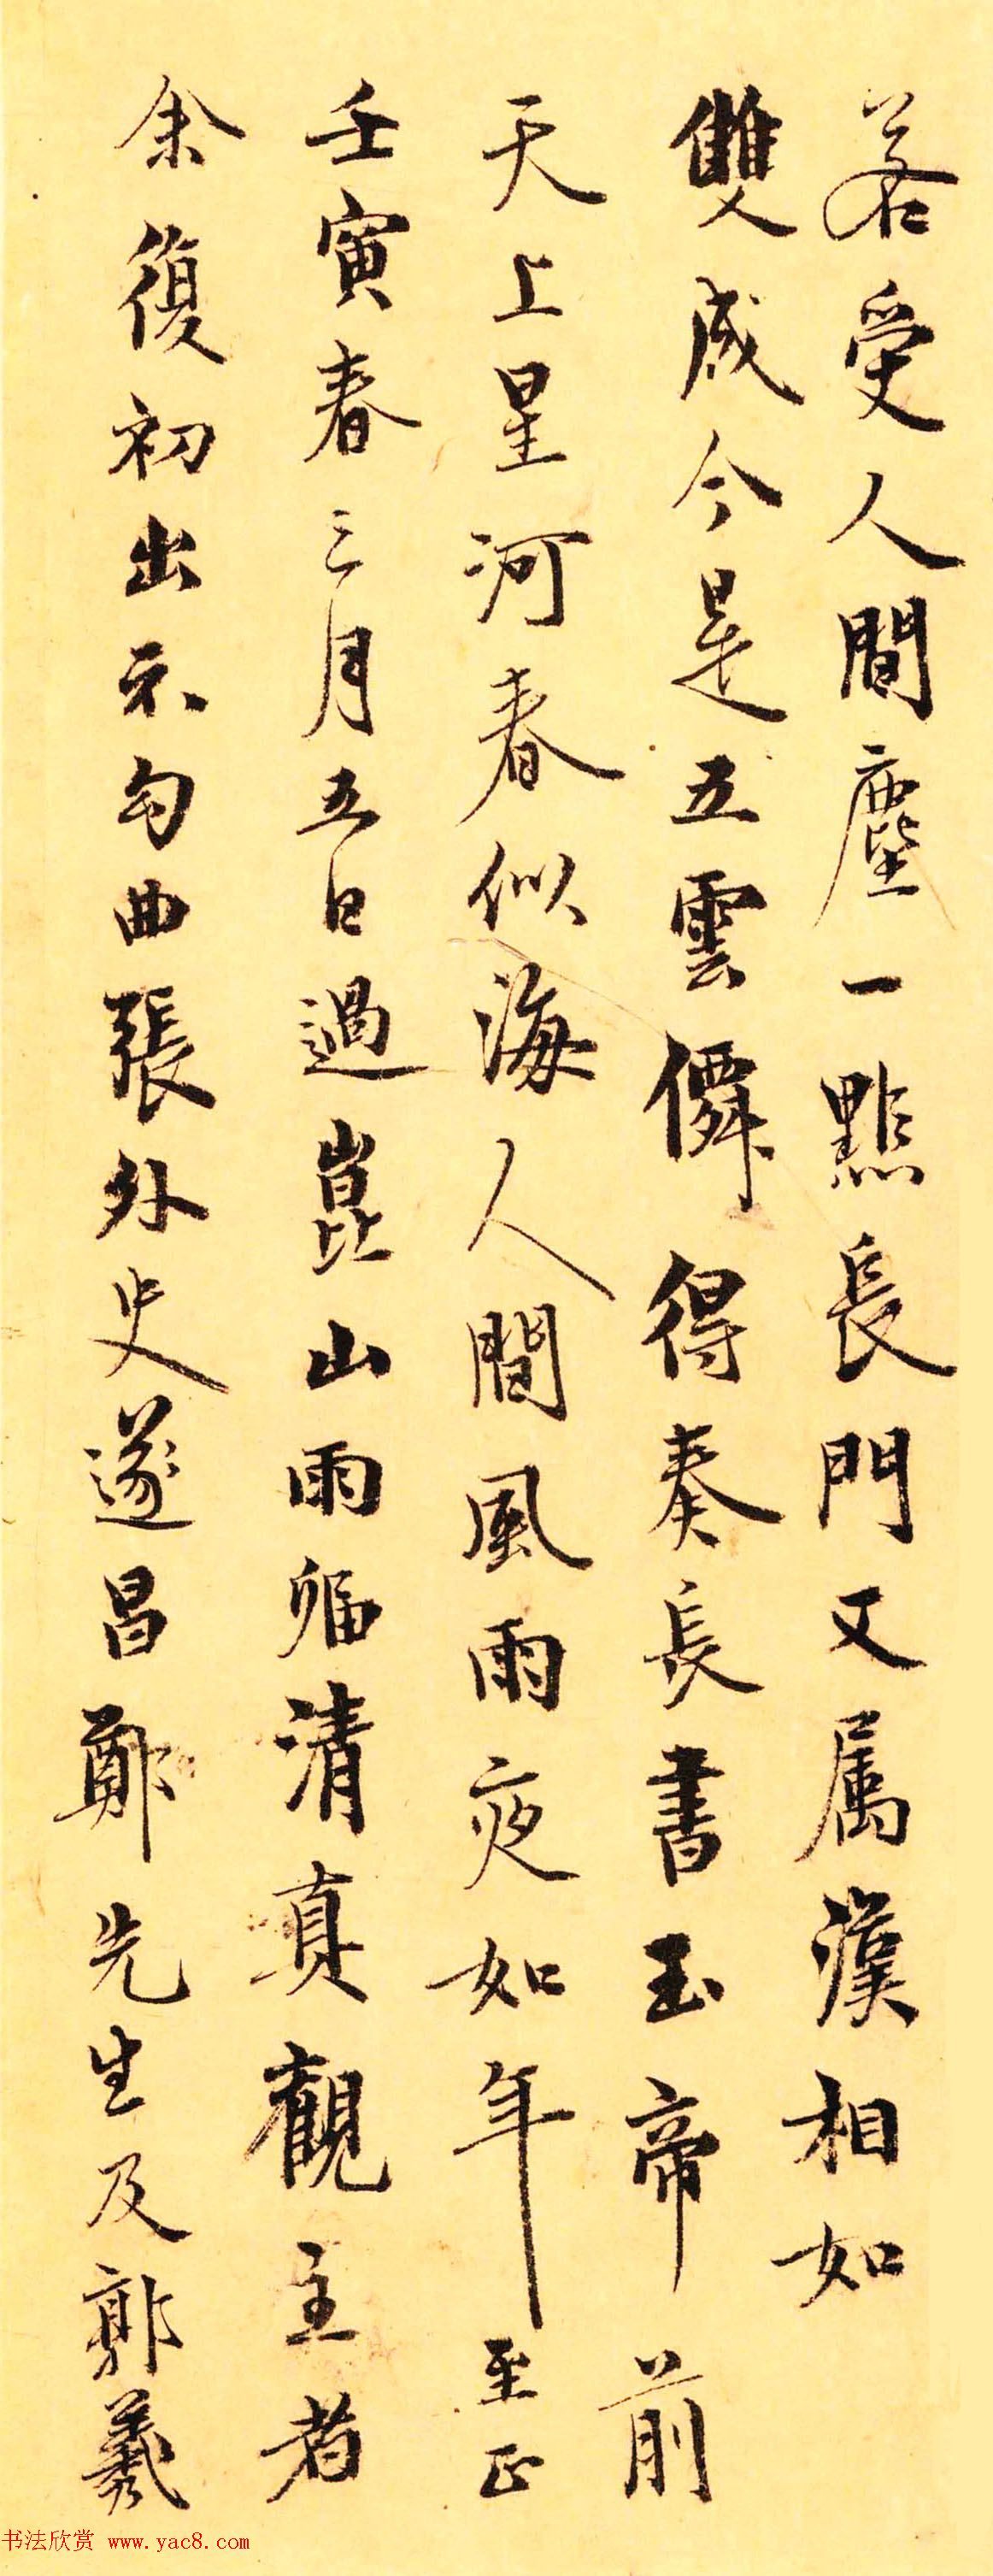 若受人間塵一點長門又属漢相如
雙成今是五雲僊得奏長書玉帝前
天上星河春似海人間風雨夜如年至正
壬寅春三月五日過崑山雨阻清真觀主者
余復初出示句曲張外史遂昌鄭先生及郭羲
书法欣赏 www.yac8.com